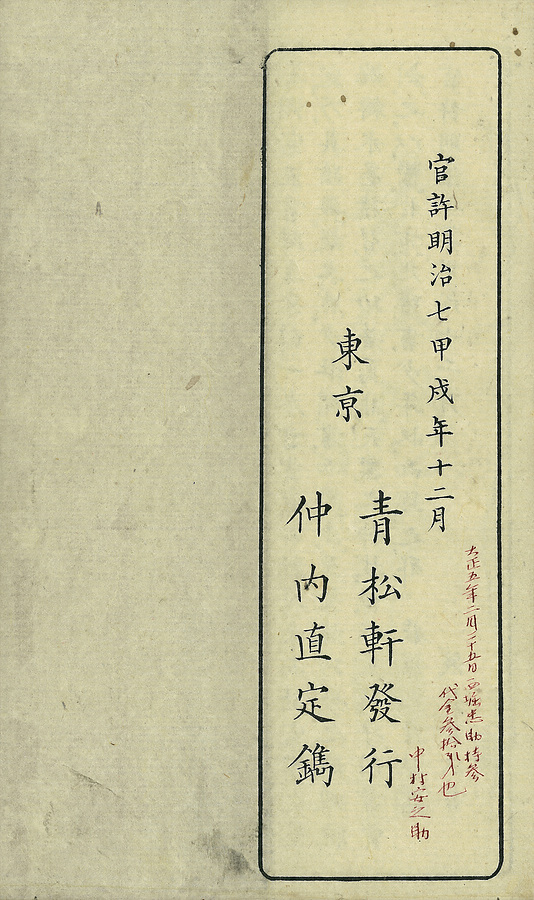 官許明治七甲戌年十二月
東京
青松軒發行
仲内直定鐫
大正五年二月二十五日西堀忠助持参
代金参拾銭也
中村安之助